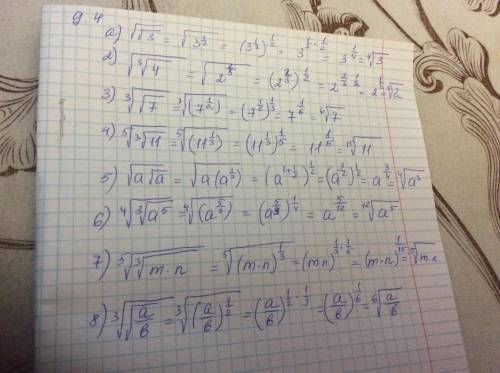 94
а) √√3 = √(3^(1/2)) = (3^(1/2))^(1/2) = 3^(1/2 · 1/2) = 3^(1/4) = ⁴√3
2) √∛4 = √(2^(2/3)) = (2^(2/3))^(1/2) = 2^(2/3 · 1/2) = 2^(1/3) = ∛2
3) ∛√7 = ∛(7^(1/2)) = (7^(1/2))^(1/3) = 7^(1/6) = ⁶√7
4) ⁵√∛11 = ⁵√(11^(1/3)) = (11^(1/3))^(1/5) = 11^(1/15) = ¹⁵√11
5) √(a√a) = √(a(a^(1/2))) = (a^(1+1/2))^(1/2) = (a^(3/2))^(1/2) = a^(3/4) = ⁴√a³
6) ⁴√∛a⁵ = ⁴√(a^(5/3)) = (a^(5/3))^(1/4) = a^(5/12) = ¹²√a⁵
7) ⁵√∛(m·n) = ⁵√((m·n)^(1/3)) = (mn)^(1/3 · 1/5) = (m·n)^(1/15) = ¹⁵√(m·n)
8) ∛√(a/b) = ∛((a/b)^(1/2)) = (a/b)^(1/2 · 1/3) = (a/b)^(1/6) = ⁶√(a/b)